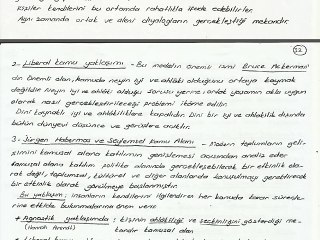 kişiler kendilerini bu ortamda rahatlıkla ifade edebilirler.
Aynı zamanda ortak ve aleni diyalogların gerçekleştiği mekandır.
12
2- Liberal kamu yaklaşımı - Bu modelin önemli ismi Bruce Ackerman
dır. Önemli olan, kamuda neyin iyi ve ahlaki olduğunu ortaya koymak
değildir. Neyin iyi ve ahlaki olduğu sorusu yerine, ortak yaşamın akla uygun
olarak nasıl gerçekleştirileceği problemi
Dini kaynaklı iyi ve ahlakiliklere kapalıdır. Dini bir iyi ve ahlakilik dışında
bütün dünyevi düşünce ve görüşlere açıktır.
3- Jürgen Habermas ve Söylemsel Kamu Alanı - Modern toplumların geli-
şimini kamusal alana katılımın genişlemesi açısından analiz eder.
kamusal alana katılım, politik alanında gerçekleşebilecek bir etkinlik ola-
rak değil, toplumsal, kültürel ve diğer alanlarda konuşulmayı gerektirecek
bir etkinlik olarak görülmeye başlanmıştır.
Bu yaklaşım; insanların kendilerini ilgilendiren her konuda kararı süreçle-
rine etkide bulunmalarına önem verir.
* Agnostik yaklaşımda : kişinin ahlakiliği ve seçkinliğini gösterdiği me-
(Hannah Arendt) kandır kamusal alan